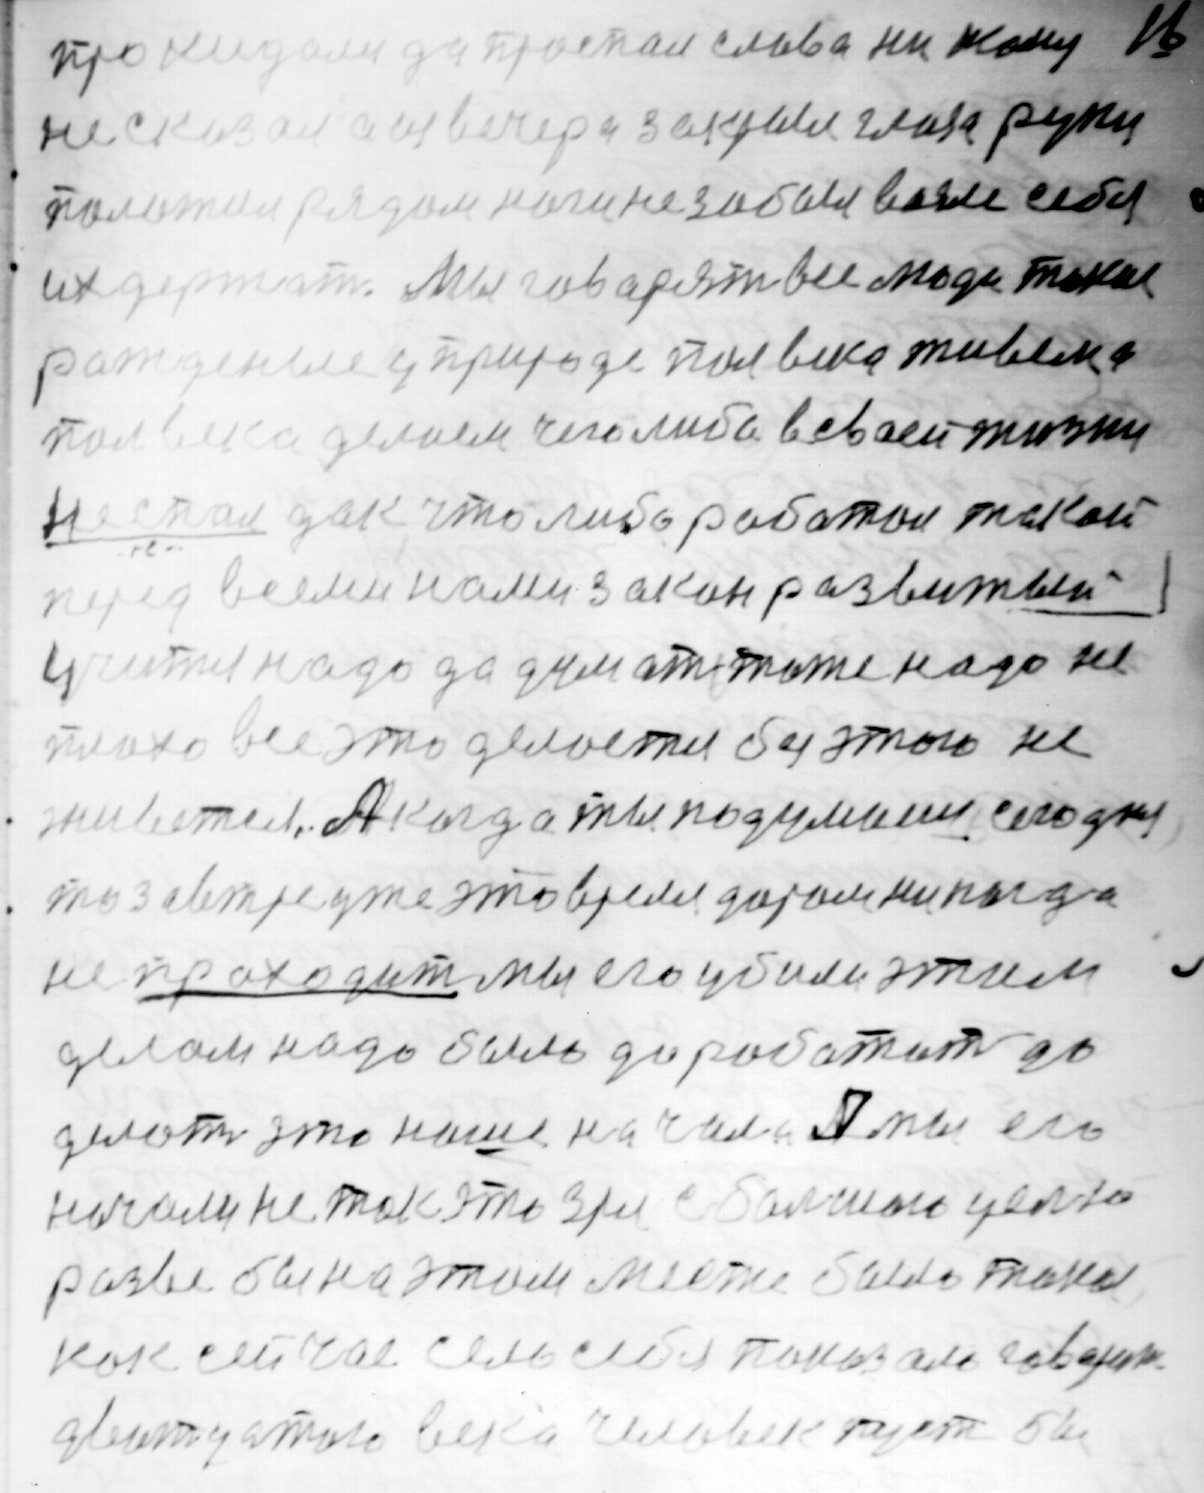 прокидали да проспал слова ни кому 16
не сказал а с вечера закрыл глаза руки
положил рядом ноги не забыл возле себя
их держать. Мы говарят все люди такие
рожденые у природе пол века живем а
пол века делаем чего либа в своей жизни
не спал дак что либо работал такой
перед всеми нами закон развитый
учится надо да думать тоже надо не
плохо все это делается без этого не
живется. А когда ты подумаеш сегодня
то завтре уже это время даром никагда
не проходит мы его убили этим
делом надо было доработать до
делать это наше начала А мы его
начали не так это зря с большого целью
разве бы на этом месте было такое
как сейчас село себя показало говарят
дватцатого века человек пуст бы